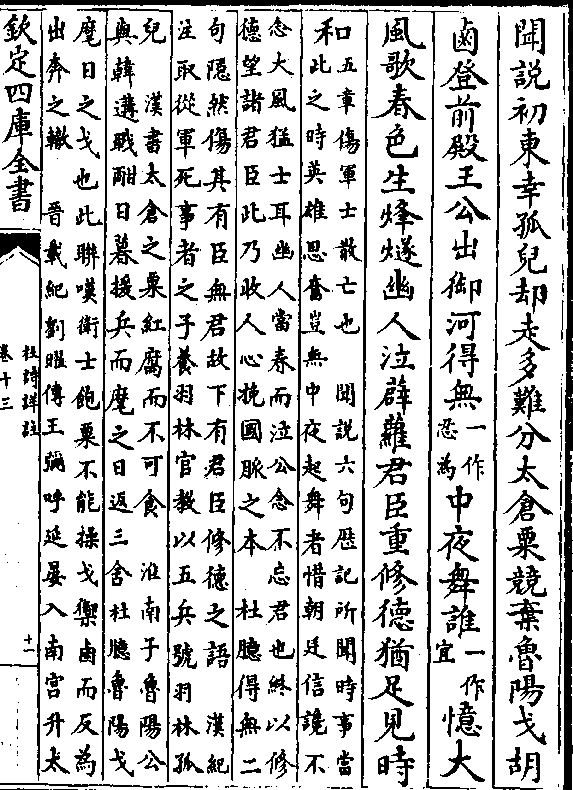 聞說初東幸孤兒却走多難分太倉粟競棄魯陽戈胡
鹵登前殿王公出御河得無一作忍為中夜舞誰一作宜憶大
風歌春色生烽燧幽人泣薜蘿君臣重修德猶足見時
和此之時英雄思奮豈無中夜起舞者惜朝廷信讒不
口五章傷軍士散亡也　聞說六句歷記所聞時事當
念大風猛士耳幽人當春而泣公念不忘君也終以修
德望諸君臣此乃收人心挽國脈之本　杜臆得無二
句隱然傷其有臣無君故下有君臣修德之語　漢紀
注取從軍死事者之子養羽林官教以五兵號羽林孤
兒　漢書太倉之粟紅腐而不可食　淮南子魯陽公
與韓遘戰酣日暮援戈而麾之日返三舍杜臆魯陽戈
麾日之戈也此聯嘆衛士飽粟不能操戈禦鹵而反為
出奔之轍　晉載紀劉曜傳王彌呼延晏入南宮升太
欽定四庫全書
杜詩詳註
卷十三
十一